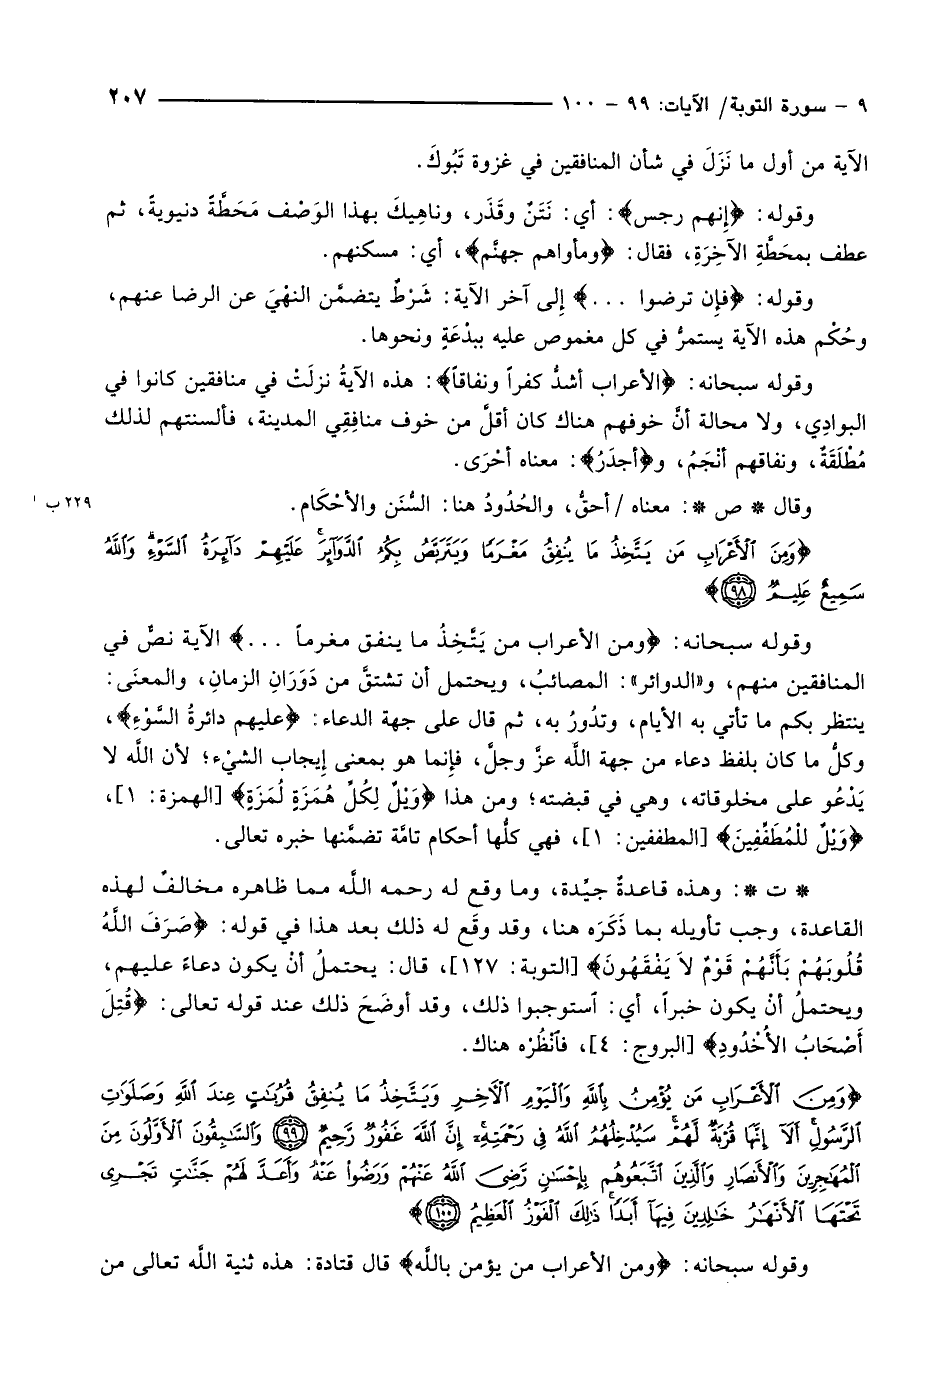 ٩ - سورة التوبة/ الآيات: ٩٩ - ١٠٠ ٢٠٧
الآية من أول ما نَزَلَ في شأن المنافقين في غزوة تَبُوكَ.
وقوله: ﴿إنهم رجس﴾: أي: نَتَنٌ وقَذَر، وناهِيكَ بهذا الوَصْف مَحَطَّةً دنيويةً، ثم
عطف بمحَطَّةِ الآخِرَةِ، فقال: ﴿ومأواهم جهنَّم﴾، أي: مسكنهم.
وقوله: ﴿فإن ترضوا ...﴾ إلى آخر الآية: شَرْطٌ يتضمَّن النهْيَ عن الرضا عنهم،
وحُكْم هذه الآية يستمرُّ في كل مغموص عليه ببِدْعَةٍ ونحوها.
وقوله سبحانه: ﴿الأعراب أشدُّ كفراً ونفاقاً﴾: هذه الآيةُ نزلَتْ في منافقين كانوا في
البوادِي، ولا محالة أنَّ خوفهم هناك كان أقلَّ من خوف منافِقِي المدينة، فألسنتهم لذلك
مُطْلَقَةٌ، ونفاقهم أنْجَمُ، و﴿أجدَرُ﴾: معناه أحْرَى.
وقال * ص *: معناه / أحقُّ، والحُدُودُ هنا: السُّنَن والأحْكَام.
٢٢٩ ب
﴿وَمِنَ ٱلْأَعْرَابِ مَن يَتَّخِذُ مَا يُنفِقُ مَغْرَمًا وَيَتَرَبَّصُ بِكُمُ ٱلدَّوَآئِرَ عَلَيْهِمْ دَآئِرَةُ ٱلسَّوْءِ وَٱللَّهُ
سَمِيعٌ عَلِيمٌ ٩٨﴾
وقوله سبحانه: ﴿ومن الأعراب من يَتَّخِذُ ما ينفق مغرماً ...﴾ الآية نصٌّ في
المنافقين منهم، و«الدوائر»: المصائبُ، ويحتمل أن تشتقَّ من دَوَرَانِ الزمانِ، والمعنَى:
ينتظر بكم ما تأتي به الأيام، وتدُورُ به، ثم قال على جهة الدعاء: ﴿عليهم دائرةُ السَّوْءِ﴾،
وكلُّ ما كان بلفظ دعاء من جهة اللَّه عزَّ وجلَّ، فإنما هو بمعنى إيجاب الشيْء؛ لأن اللَّه لا
يَدْعُو على مخلوقاته، وهي في قبضته؛ ومن هذا ﴿وَيْلٌ لِكُلِّ هُمَزَةٍ لُمَزَةٍ﴾ [الهمزة: ١]،
﴿وَيْلٌ للْمُطَفِّفِينَ﴾ [المطففين: ١]، فهي كلُّها أحكام تامَّة تضمَّنها خبره تعالى.
* ت *: وهذه قاعدةٌ جيِّدة، وما وقع له رحمه اللَّه مما ظاهره مخالفٌ لهذه
القاعدة، وجب تأويله بما ذَكَرَه هنا، وقد وقَع له ذلك بعد هذا في قوله: ﴿صَرَفَ اللَّهُ
قُلُوبَهُمْ بَأَنَّهُمْ قَوْمٌ لاَ يَفْقَهُونَ﴾ [التوبة: ١٢٧]، قال: يحتملُ أنْ يكون دعاءً عليهم،
ويحتملُ أنْ يكون خبراً، أي: ٱستوجبوا ذلك، وقد أوضَحَ ذلك عند قوله تعالى: ﴿قُتِلَ
أَصْحَابُ الأُخْدُودِ﴾ [البروج: ٤]، فٱنْظُرْه هناك.
﴿وَمِنَ ٱلْأَعْرَابِ مَن يُؤْمِنُ بِٱللَّهِ وَٱلْيَوْمِ ٱلْآخِرِ وَيَتَّخِذُ مَا يُنفِقُ قُرُبَٰتٍ عِندَ ٱللَّهِ وَصَلَوَٰتِ
ٱلرَّسُولِ أَلَآ إِنَّهَا قُرْبَةٌ لَّهُمْ سَيُدْخِلُهُمُ ٱللَّهُ فِى رَحْمَتِهِۦٓ إِنَّ ٱللَّهَ غَفُورٌ رَّحِيمٌ ٩٩ وَٱلسَّٰبِقُونَ ٱلْأَوَّلُونَ مِنَ
ٱلْمُهَٰجِرِينَ وَٱلْأَنصَارِ وَٱلَّذِينَ ٱتَّبَعُوهُم بِإِحْسَٰنٍ رَّضِىَ ٱللَّهُ عَنْهُمْ وَرَضُوا۟ عَنْهُ وَأَعَدَّ لَهُمْ جَنَّٰتٍ تَجْرِى
تَحْتَهَا ٱلْأَنْهَٰرُ خَٰلِدِينَ فِيهَآ أَبَدًا ذَٰلِكَ ٱلْفَوْزُ ٱلْعَظِيمُ ١٠٠﴾
وقوله سبحانه: ﴿ومن الأعراب من يؤمن باللَّه﴾ قال قتادة: هذه ثنية اللَّه تعالى من